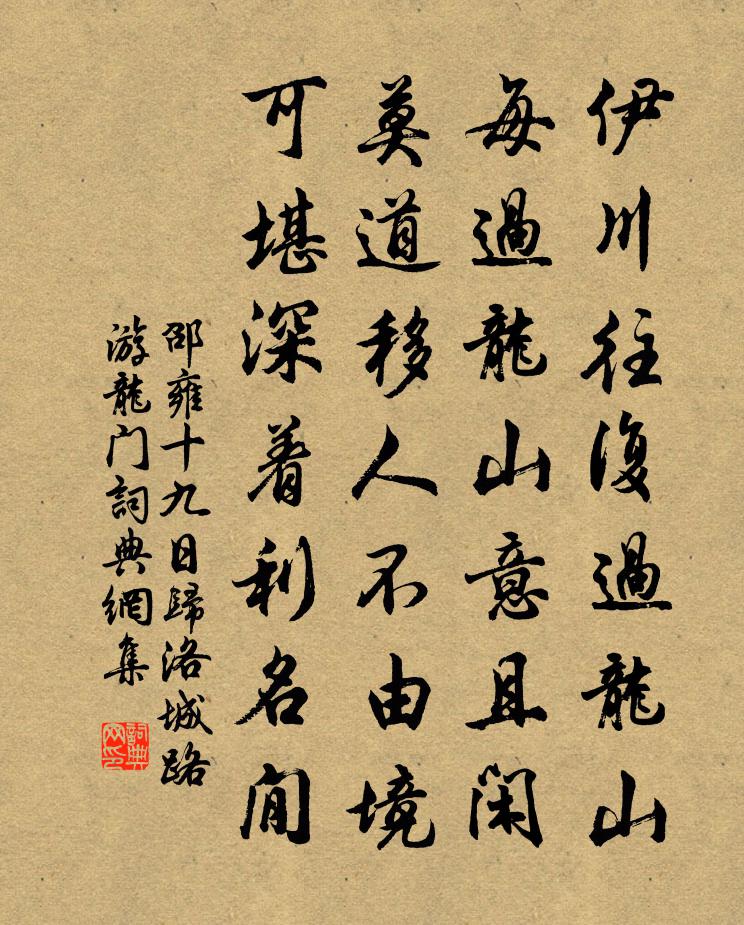 伊川往復過龍山
每過龍山意且閑
莫道移人不由境
可堪深着利名間
邵雍十九日歸洛城路
游龍门詞典網集
詞典
网印